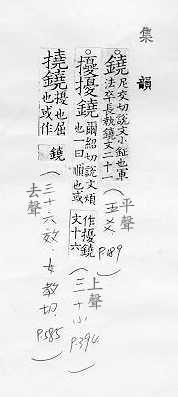 集
韻
鐃尼交切說文小鉦也軍
法卒長執鐃文二十一
(平聲
五爻
P.189)
擾擾鐃爾紹切說文煩
也一曰順也或作擾鐃
文十六
(上聲
三十小
P.394)
撓鐃擾也屈
也或作鐃
(去聲
三十六效·女教切·
P.585)